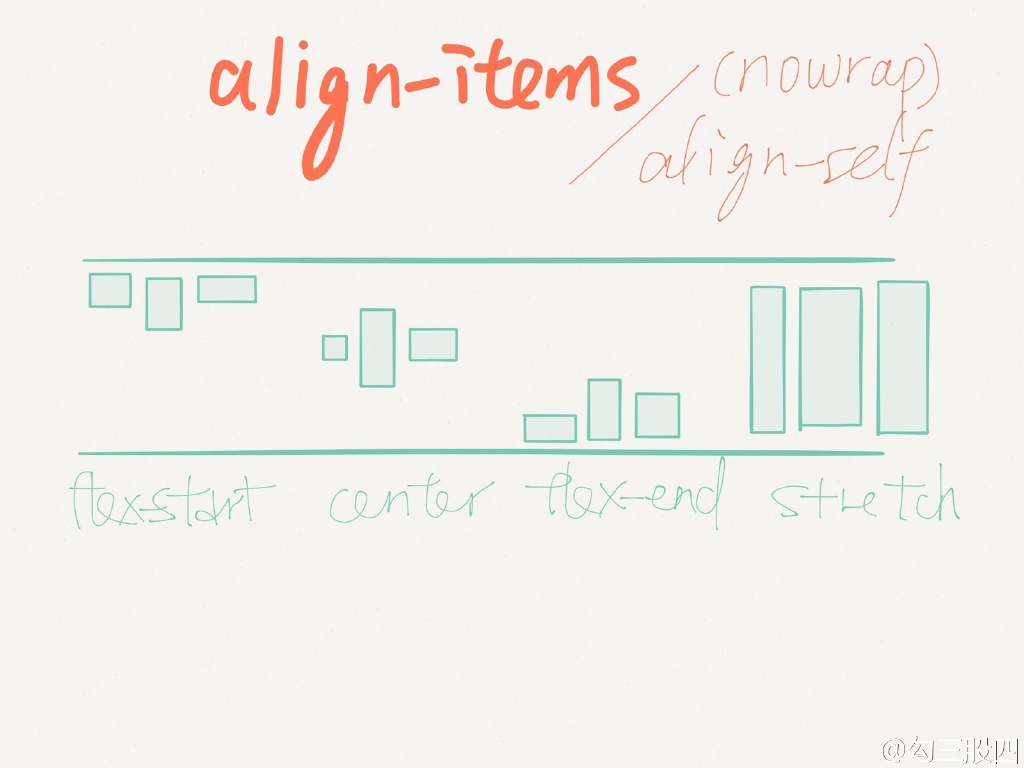 align-items / (nowrap)
align-self
flex-start center flex-end stretch
@勾三股四